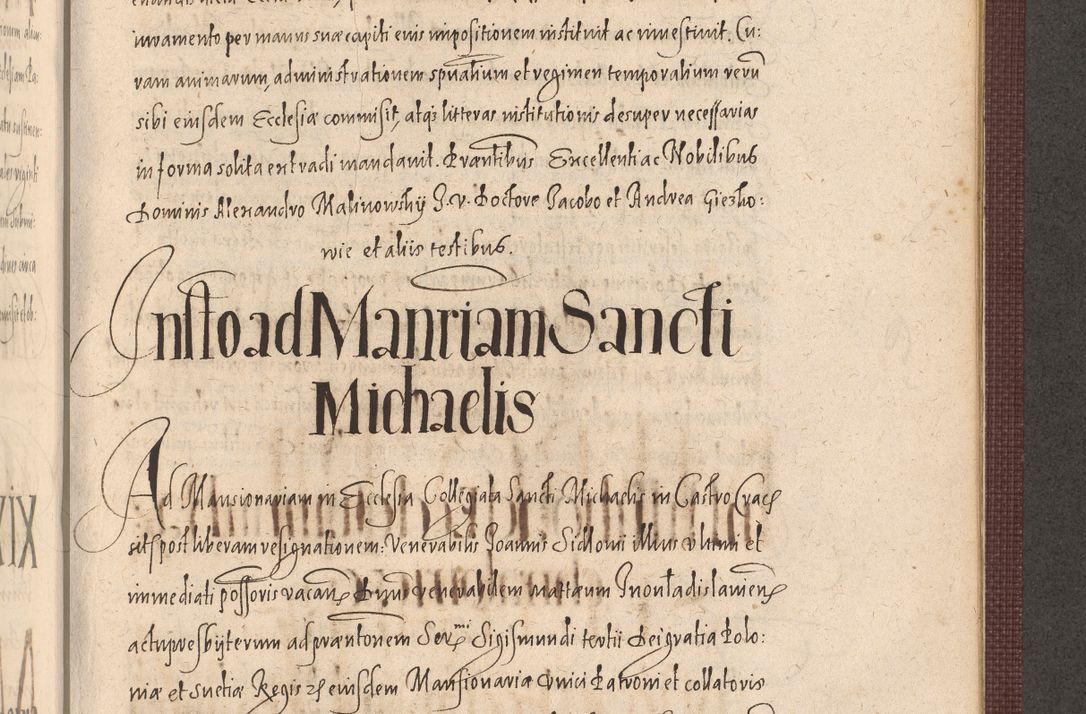 iuramento per manus suæ capiti eius impositionem instituit ac inuestiuit. Cu:
ram animarum, administrationem spualium et regimen temporalium rerū
sibi eiusdem Ecclesiæ commisit, atqȝ litteras institutionis desuper necessarias
in forma solita extradi mandauit. Præntibus Excellenti ac Nobilibus
Dominis Alexandro Malinowskÿ J. v. Doctore Jacobo et Andrea Giesko:
wie et aliis testibus.
Instto ad Manriam Sancti
Michaelis
Ad Mansionariam in Ecclesia Collegiata Sancti Michaelis in Castro Crac
sit post liberam resignationem: Venerabilis Joannis Illius ultimi et
immediati possoris vacan Dnum venerabilem Inouladislauien
actu presbÿterum ad præntonem Ser mi Sigismundi tertii Dei gratia Polo:
niæ et Suetiæ Regis eiusdem Mansionariæ vnici Patroni et collatoris
XIX